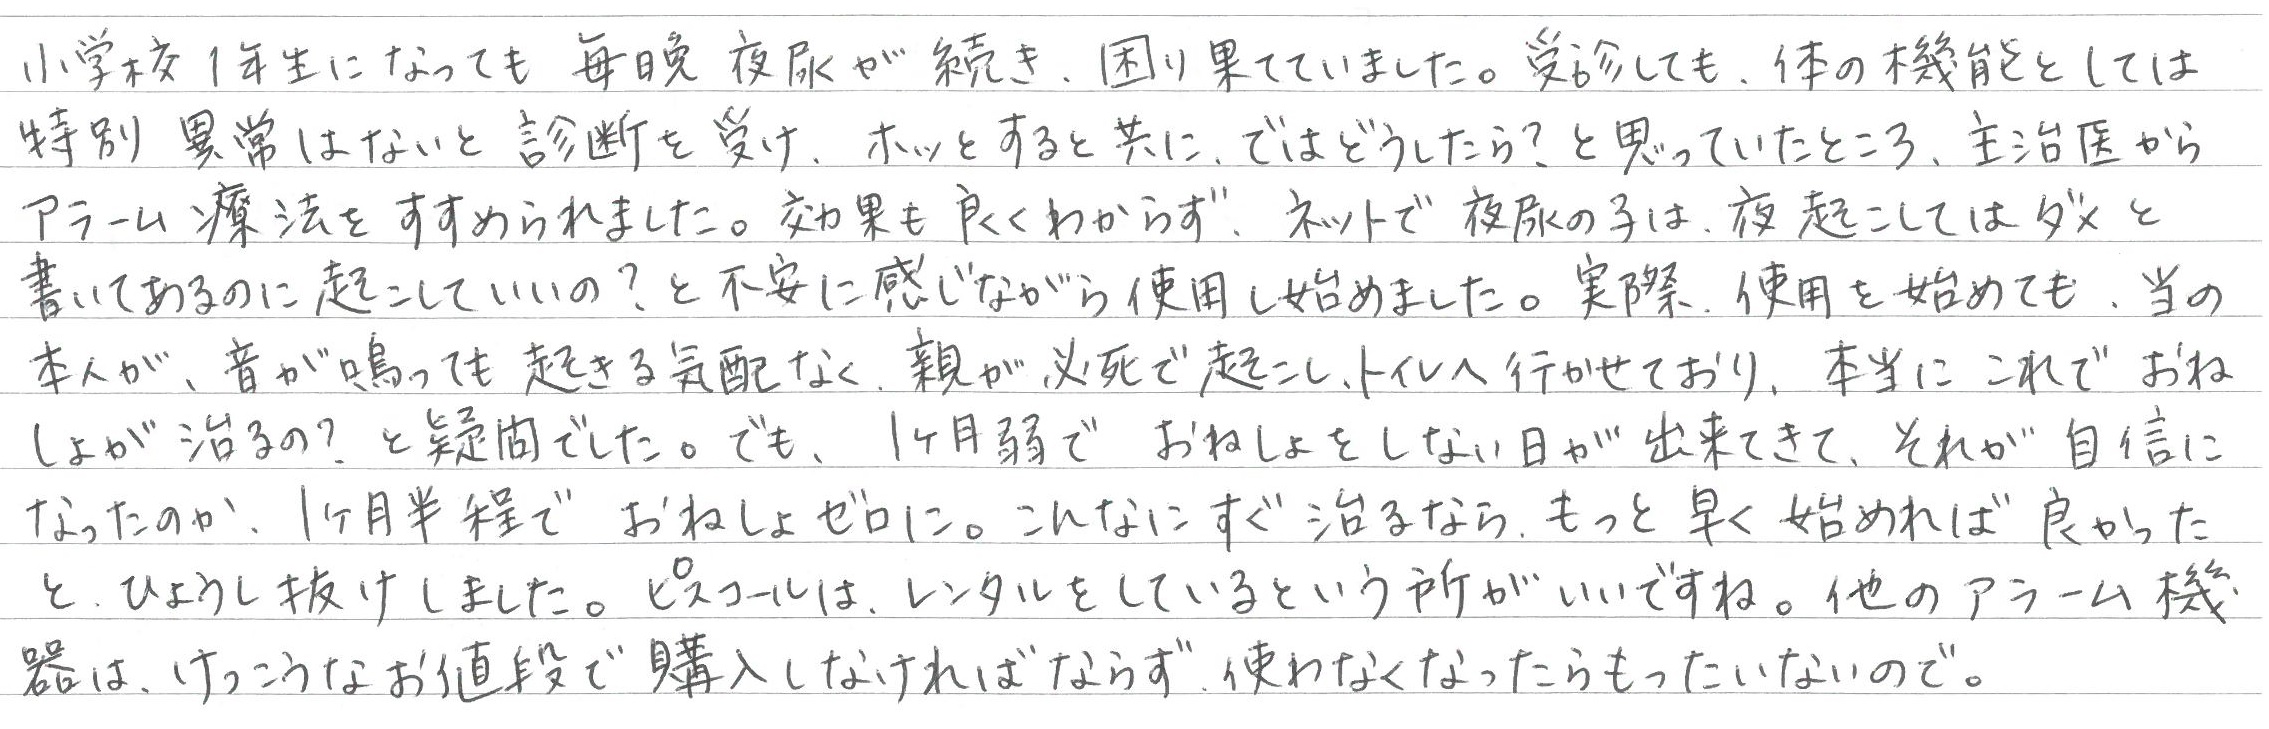 小学校1年生になっても 毎晩 夜尿が 続き、困り果てていました。受診しても、体の機能としては
特別 異常はないと 診断を受け、ホッとすると共に、ではどうしたら?と思っていたところ、主治医から
アラーム療法をすすめられました。効果も良くわからず、ネットで 夜尿の子は、夜起こしてはダメと
書いてあるのに起こしていいの?と不安に感じながら使用し始めました。実際、使用を始めても、当の
本人が、音が鳴っても起きる気配なく、親が必死で起こし、トイレへ行かせており、本当に これで おね
しょが 治るの? と疑問でした。でも、1ヶ月弱で おねしょをしない日が出来てきて、それが自信に
なったのか、1ヶ月半程で おねしょゼロに。こんなにすぐ治るなら、もっと早く始めれば良かった
と、ひょうし抜けしました。ピスコールは、レンタルをしているという所がいいですね。他のアラーム機
器は、けっこうなお値段で購入しなければならず、使わなくなったらもったいないので。